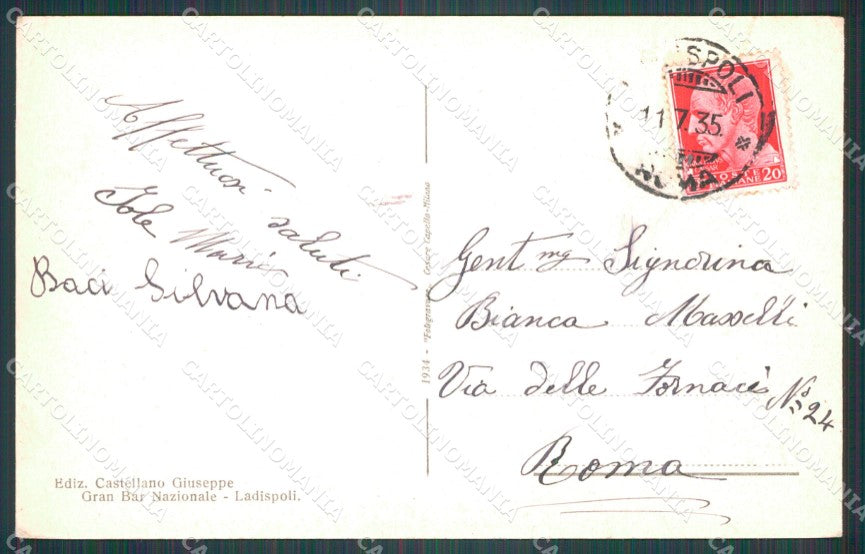 Affettuosi saluti
Iole Maria
Baci Silvana
Ediz. Castellano Giuseppe
Gran Bar Nazionale - Ladispoli.
1934 - "Fotogravure" - Cesare Capello-Milano
SPOLI
11.7.35
ROMA
20
Gent mg Signorina
Bianca
Via delle Fornaci N° 24
Roma
CARTOLINOMANIA